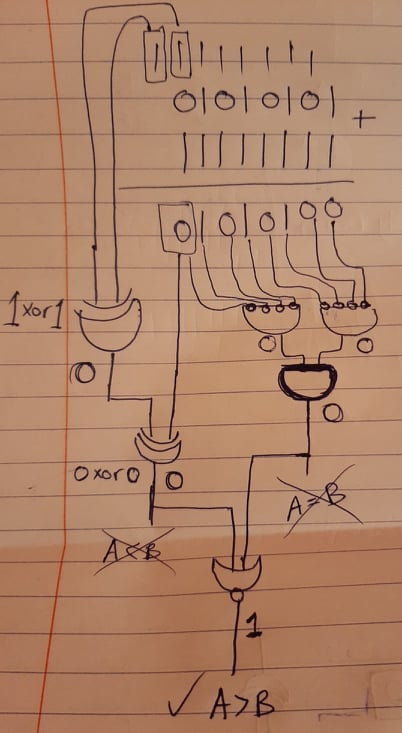 1 1 1 1 1 1 1 1
0 1 0 1 0 1 0 1 +
1 1 1 1 1 1 1 1
0 1 0 1 0 1 0 0
1xor1
0 0
0
0
0xor0 0
A=B
A<B
1
✓ A>B